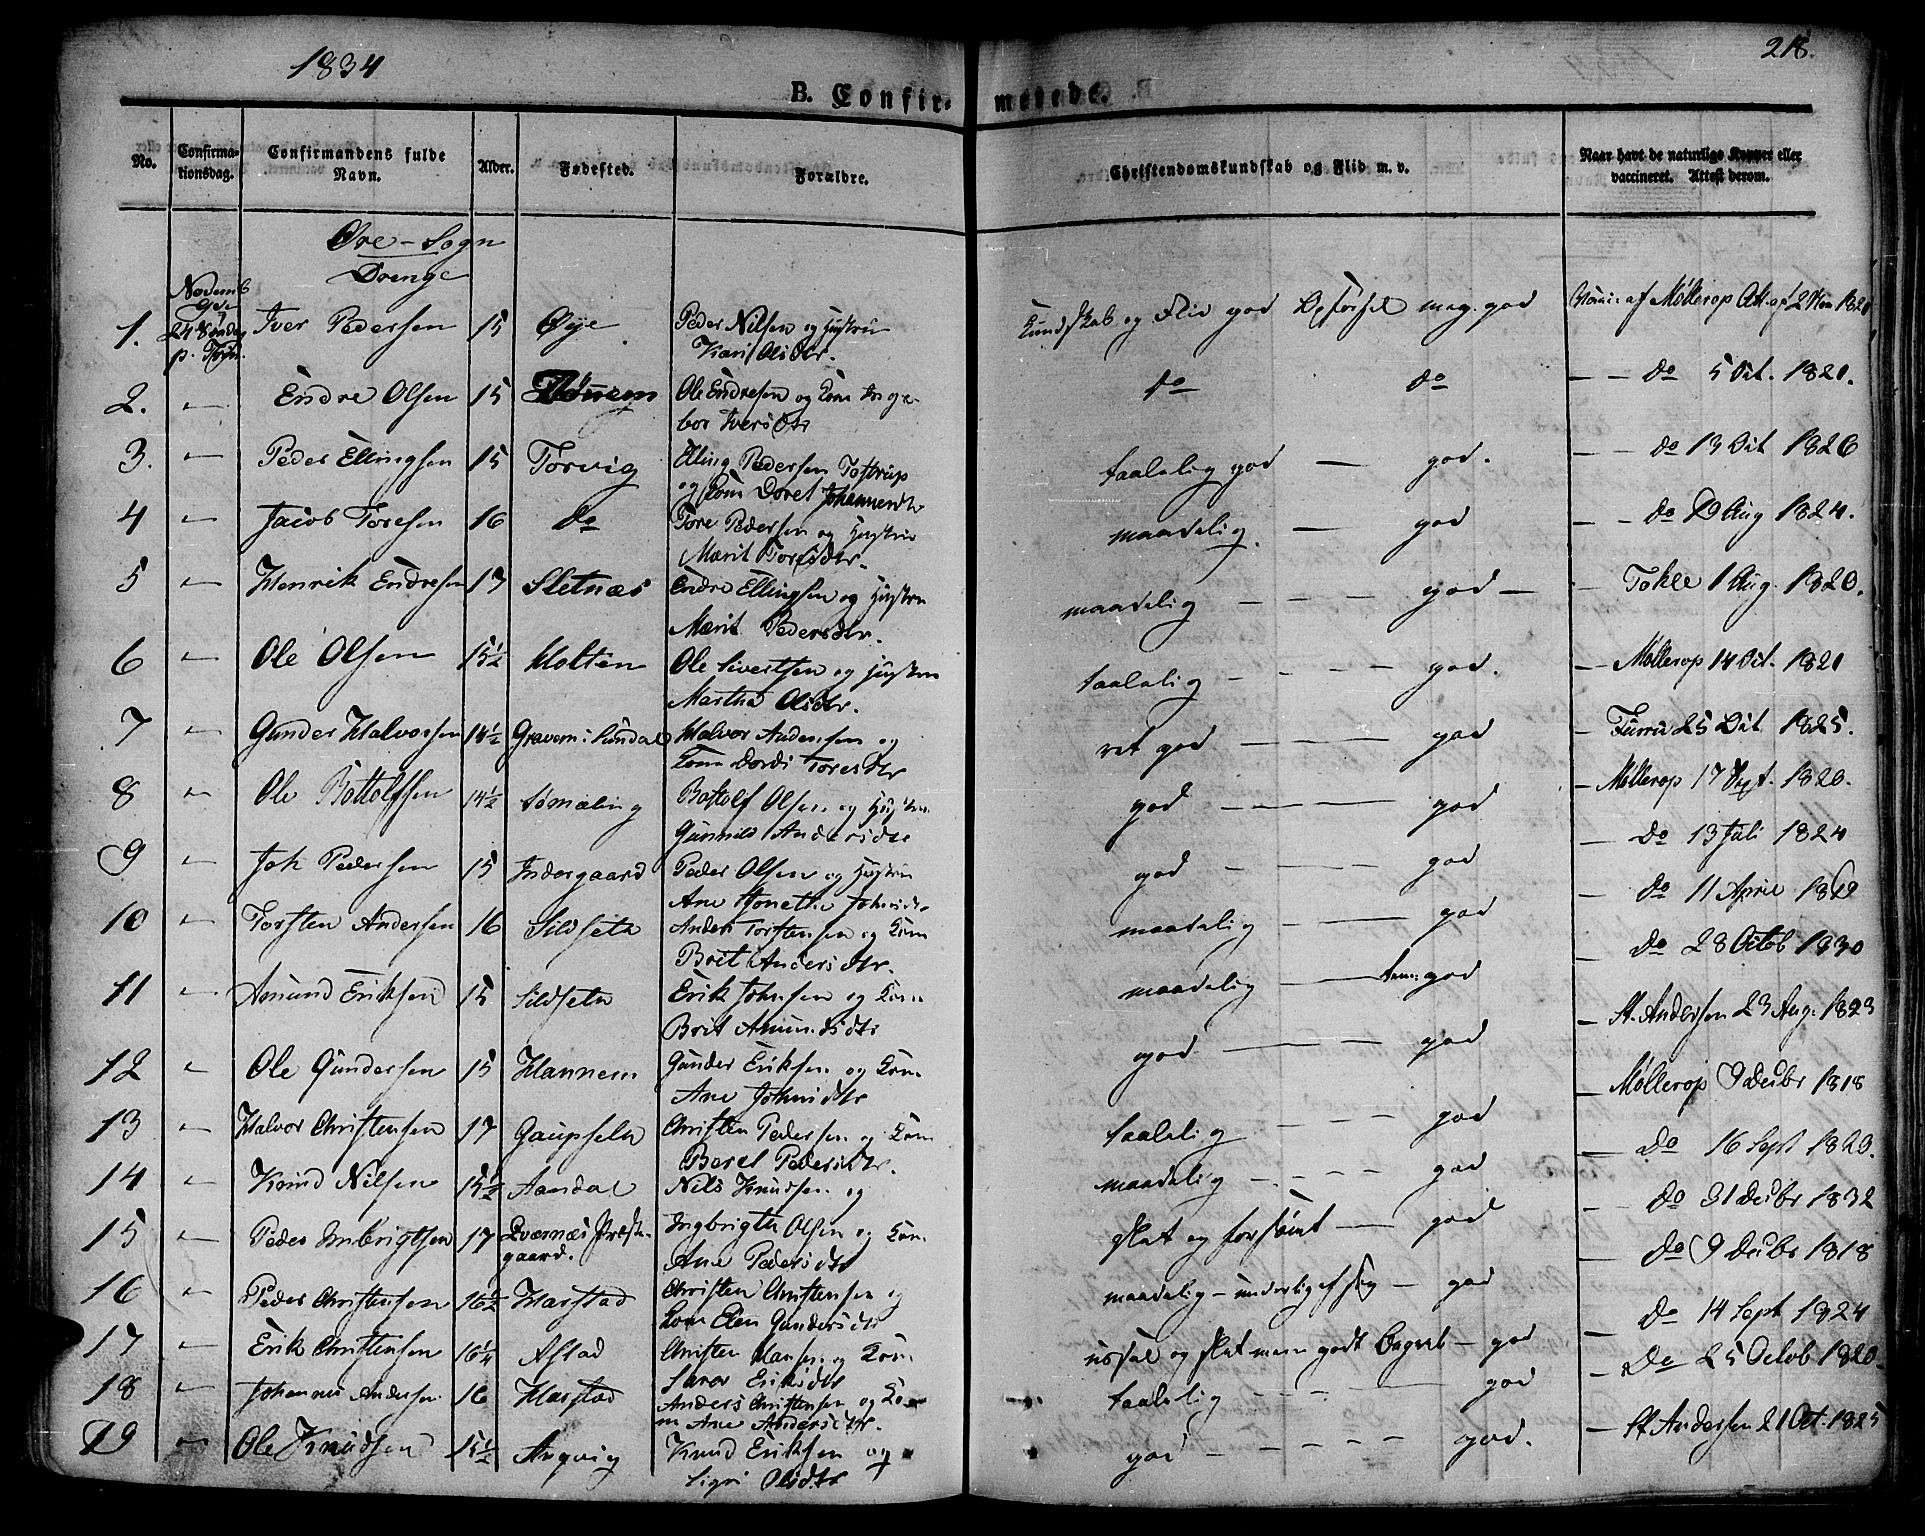 1834
218.
B. Confir- merede.
No. Confirma-tionsdag. Confirmandens fulde Navn. Alder. Fødested. Forældre. Christendomskundskab og Flid m. v. Naar havt de naturlige Kopper eller vaccineret. Attest derom.
Øre - Sogn
Drenge
1. Novemb 24 Søndag p. Trin. Iver Pedersen 15 Øye Peder Nilsen og Hustru Kari Olsdtr. Kundskab og Flid god Opførsel meg. god Vacc. af Møllerop Att. af 1821
2. " Endre Olsen 15 Ole Endresen og Kone Ingebor Iversdtr do do — — do 5 Oct. 1821.
3. " Peder Ellingsen 15 Torvig Elling Pedersen Tostrup og Kone Doret Johannesdtr taalelig god — god. — do 13 Oct 1826
4 " Jacob Toresen 16 do Tore Pedersen og Hustru Marit Toresdtr. maadelig — god — — do 19 Aug 1824.
5 " Henrik Endresen 17 Sletnæs Endre Ellingsen og Hustru Marit Pedersdtr. maadelig — — — god — — Tokle 1 Aug. 1820.
6 " Ole Olsen 15½ Holten Ole Sivertsen og Hustru Martha Olsdtr. taalelig — — — god. — Møllerop 14 Oct. 1821
7 " Gunder Halvorsen 18½ Gravem i Sundal Halvor Andersen og Kone Dordi Toresdtr ret god — — — god — Furru 25 Oct 1825.
8 " Ole Bottolfsen 14½ Sømæling Bottolf Olsen og Hustru Gunnild Andersdtr god — — — god — Møllerop 17 Sept. 1820.
9 " Joh Pedersen 15 Indergaard Peder Olsen og Hustru Ane Johnsdtr god — — — god — do 13 Juli 1824
10 " Torsten Andersen 16 Sildseth Anders Torstensen og Kone Brit Andersdtr. maadelig — — god — do 11 April
11 " Amund Eriksen 15 Sildseth Erik Johnsen og Kone Brit Amundsdtr maadelig — god — do 28 Octob 1830
12 " Ole Gundersen 15 Hannem Gunder Eriksen og Kone Ane Johnsdtr god — — god — St. Andersen 23 Aug. 1823
13 " Halvor Christensen 17 Gaupseth Christen Pedersen og Kone Beret Pedersdtr. taalelig — — — god — Møllerop 9 Decbr 1818
14 " Knud Nilsen 15½ Aandal Nils Knudsen og maadelig — — — god — do 16 Sept 1820.
15 " Peder Imbrigtsen 17 Qværnæs Præstegaard. Ingbrigth Olsen og Kone Ane Pedersdtr slet og forsømt — god — do 31 Decbr 1832
16 " Peder Christensen 16½ Harstad Christen Christensen og Kone Elen Gundersdtr maadelig — god — do 9 Decbr 1818
17 " Erik Christensen 16¼ Astad Christen Hansen og Kone Eriksdtr ussel og slet men godt Begreb — god — do 14 Sept 1824
18 " Johannes Andersen 16 Harstad Anders Christensen og Kone Ane Andersdtr. taalelig — — — god — do 25 Octob 1820
19 " Ole Knudsen 15½ Angvig Knud Eriksen og Sigri Olsdtr god — — — god. — St Andersen 21 Oct. 1825